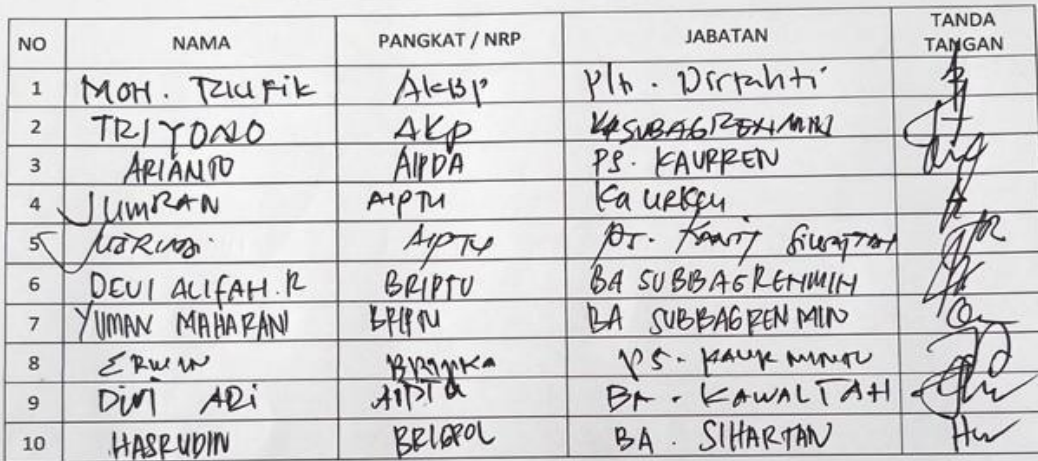 NO NAMA PANGKAT / NRP JABATAN TANDA TANGAN
1 MOH. Taufik AKBP Plh. Dirtahti
2 TRIYONO AKP KASUBAGRENMIN
3 ARIANTO AIPDA PS. KAURREN
4 JUMRAN AIPTU Ka URKEU
5 AIPTU PS.
6 DEVI ALIFAH.R BRIPTU BA SUBBAGRENMIN
7 YUMAN MAHARANI BRIPTU BA SUBBAGRENMIN
8 ERWIN BRIPKA PS. KAUR
9 DWI ARI AIPTU BA. KAWALTAH
10 HASRUDIN BRIGPOL BA. SIHARTAN